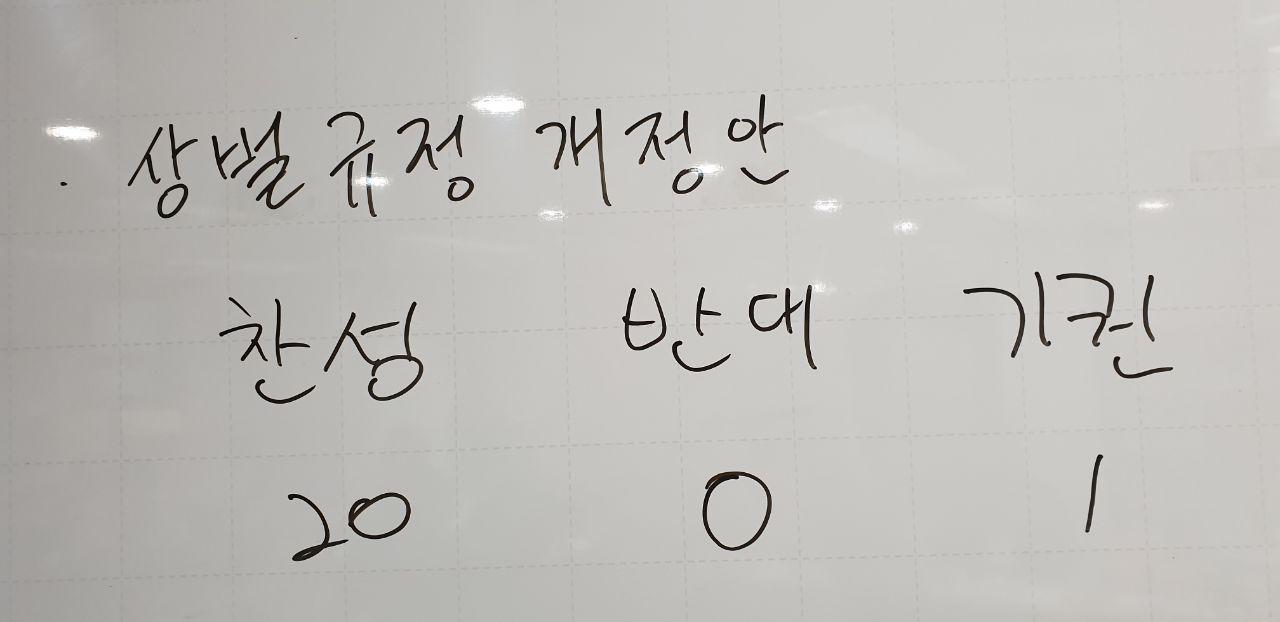 · 상벌규정 개정안
찬성 반대 기권
20 0 1